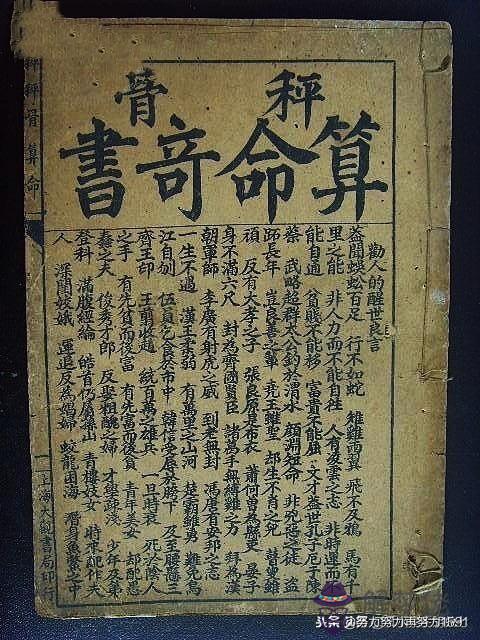 秤骨
算命奇書
勸人的醒世良言
蓋聞蜈蚣百足 行不如蛇 雄雞兩翼 飛不及鴉 馬有千
里之能 非人力而不能自往 人有凌雲之志 非時運而不
能自通 貧賤不能移 富貴不能屈 文才蓋世孔子厄于陳
蔡 武略超群太公釣於渭水 顏淵短命 非兇惡之徒 盜
長年 豈良善之輩 堯王雖聖 却生不肖之兒 瞽叟雖
頑 反有大孝之子 張良原是布衣 蕭何曾為縣吏 晏子
身不滿六尺 封為齊國賢臣 諸葛手無縛雞之力 拜為漢
朝軍師 李廣有射虎之威 到老無封 馮唐有安邦之志
一生不遇 漢王雖弱 有萬里之山河 楚霸雖勇 難免烏
江自刎 伍員乞食於市中 韓信受辱於胯下 及至腰懸三
齊王印 王翦收趙 統百萬之雄兵 一旦時衰 死於陰人
之手 有先貧而後富 有先富而後貧 青年美女 却配愚
蠢之夫 俊秀才郎 反娶粗醜之婦 才學疎淺 少年及第
登科 滿腹經綸 皓首仍屬孫山 青樓妓女 時來配作夫
人 深閨姣娥 運退反為娼婦 蛟龍困海 潛身魚鱉之中
秤骨算命
上海大觀書局印行
头条@努力努力再努力1591